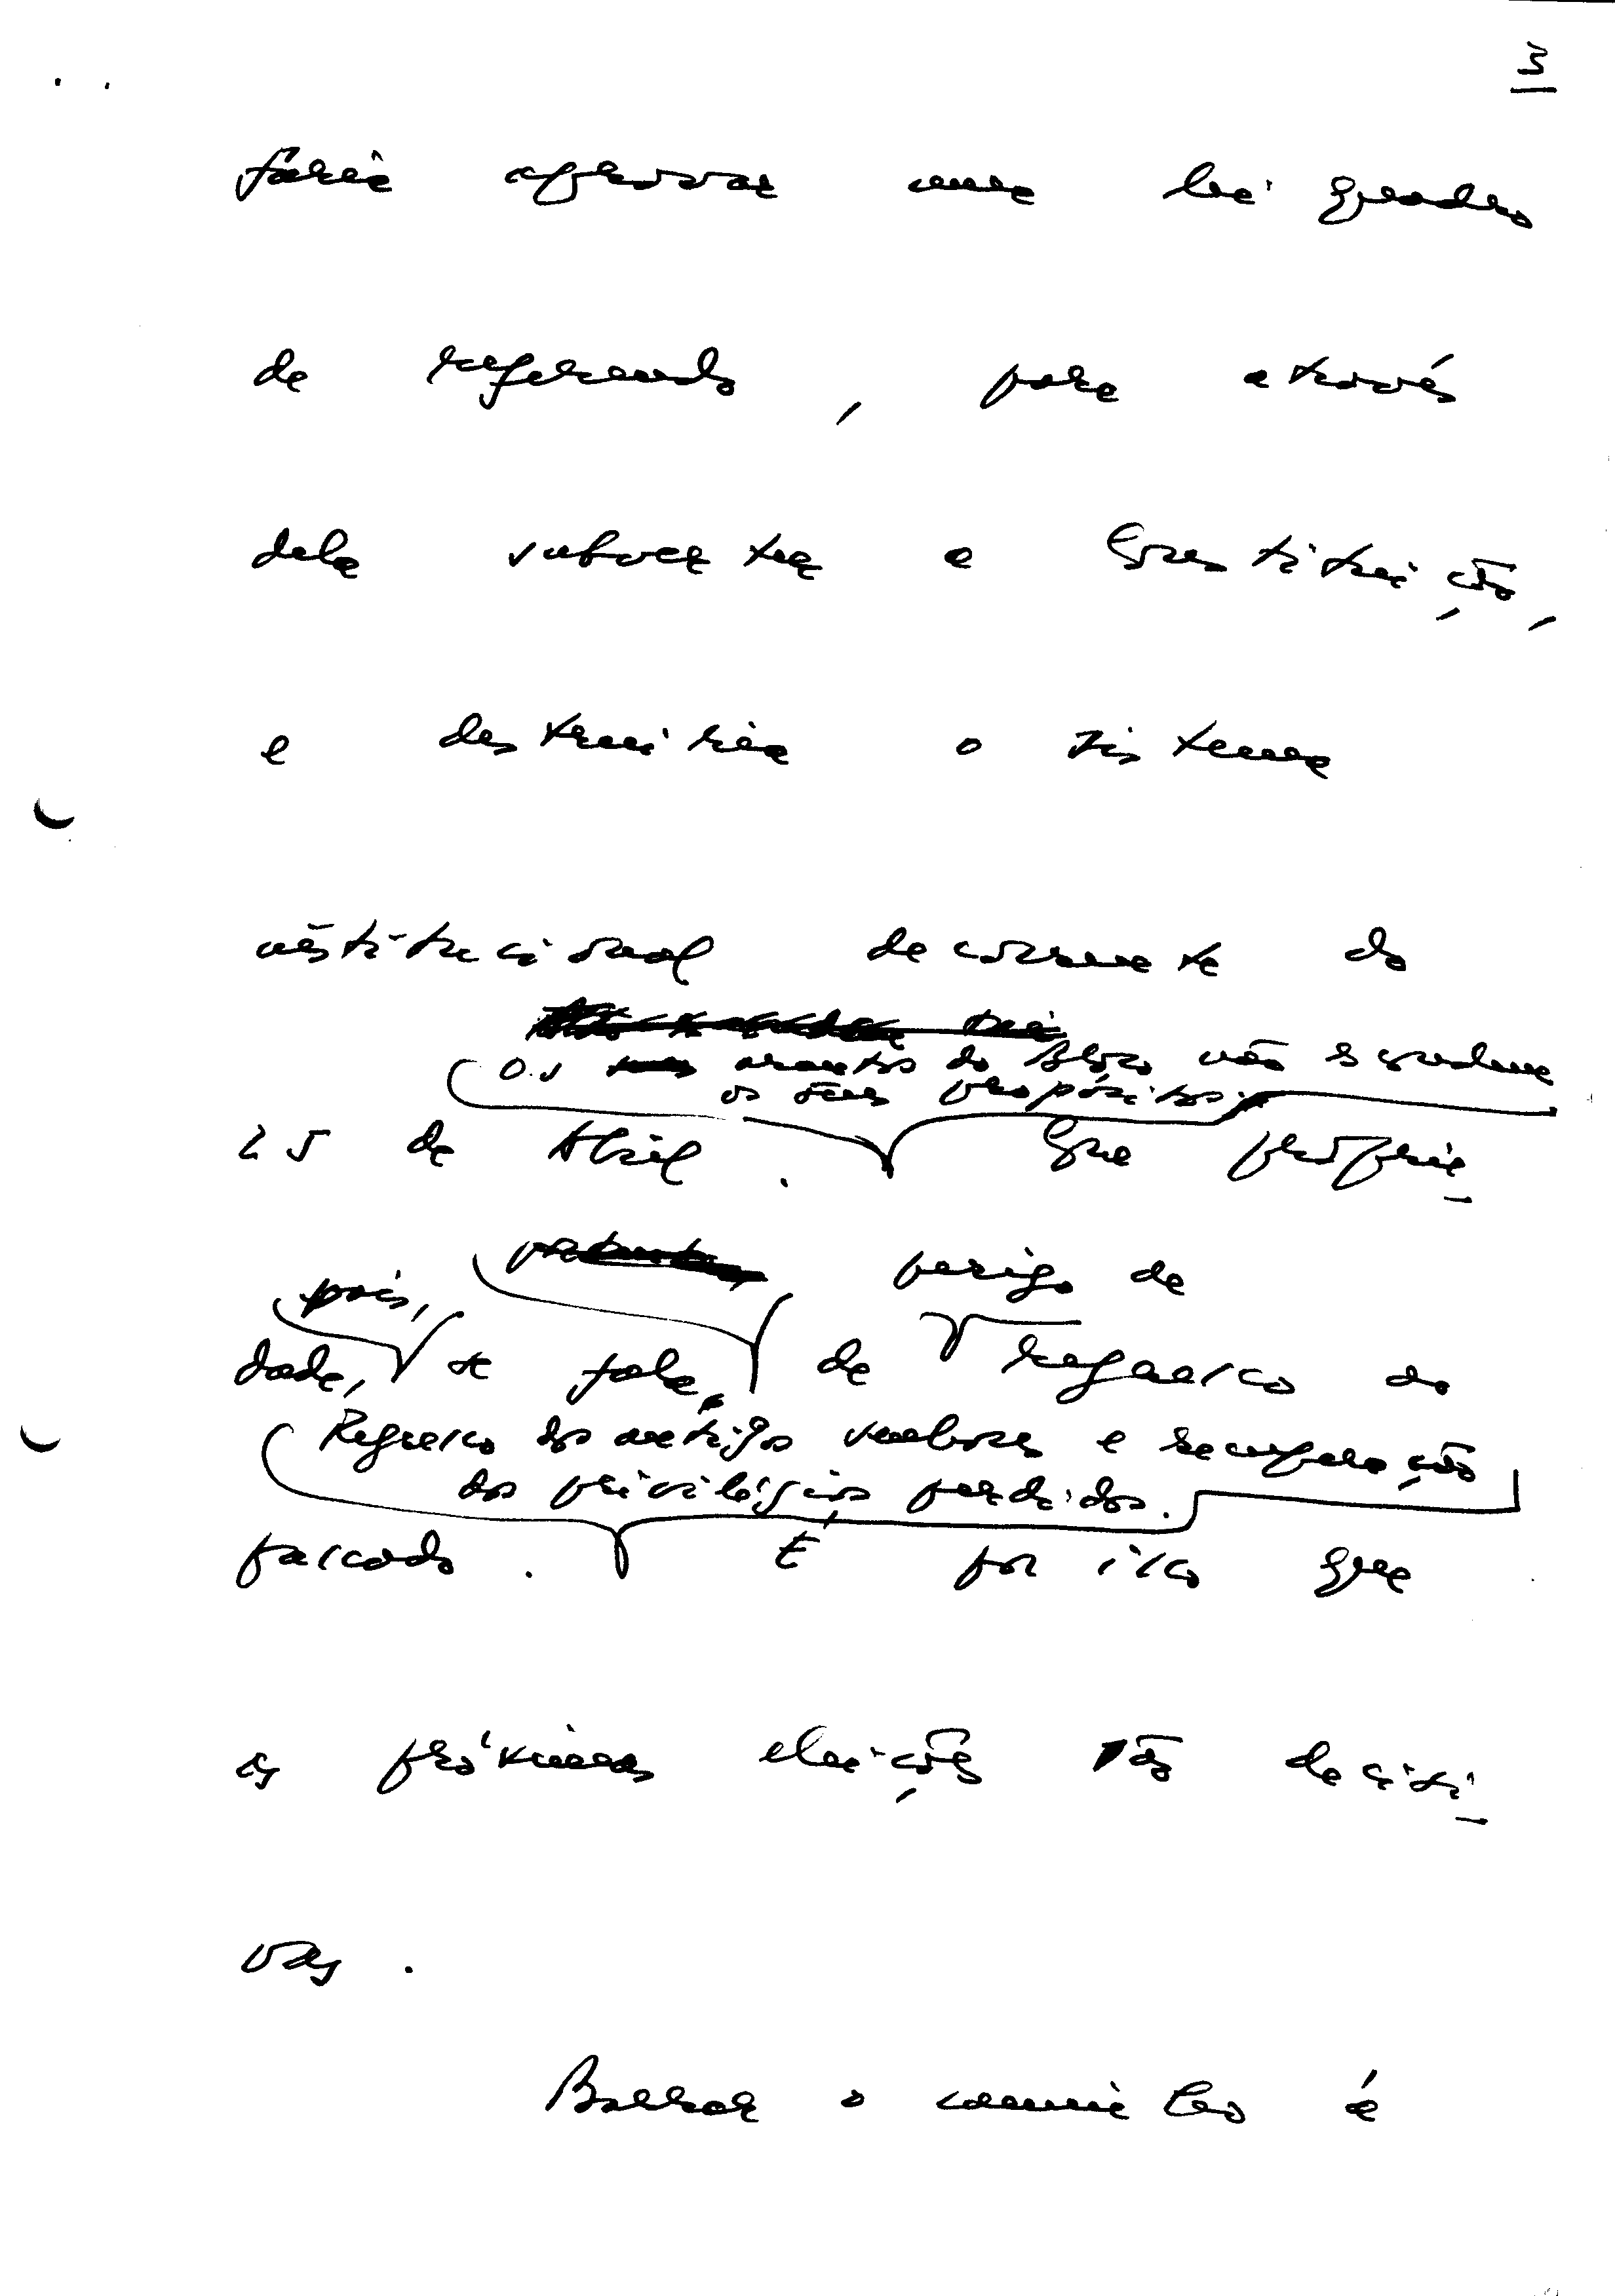 3
faria aprovar uma lei quadro
de referendo, para através
dela subverter a Constituição,
e destruiria o sistema
institucional decorrente do
Os arautos do Bloco não escondem
os seus propósitos.
25 de Abril. Com proprie-
pois, perigo de
dade, se fala, de regresso ao
Regresso dos antigos senhores e recuperação
dos privilégios perdidos.
passado. É por isso que
as próximas eleições são decisi-
vas.
Barrar o caminho é